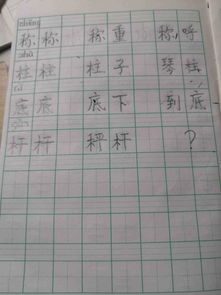 称 称 称 重 称 呼
zhù
柱 柱 柱 子 琴 柱
底 底 底 下 到 底
杆 杆 秤 杆 ?